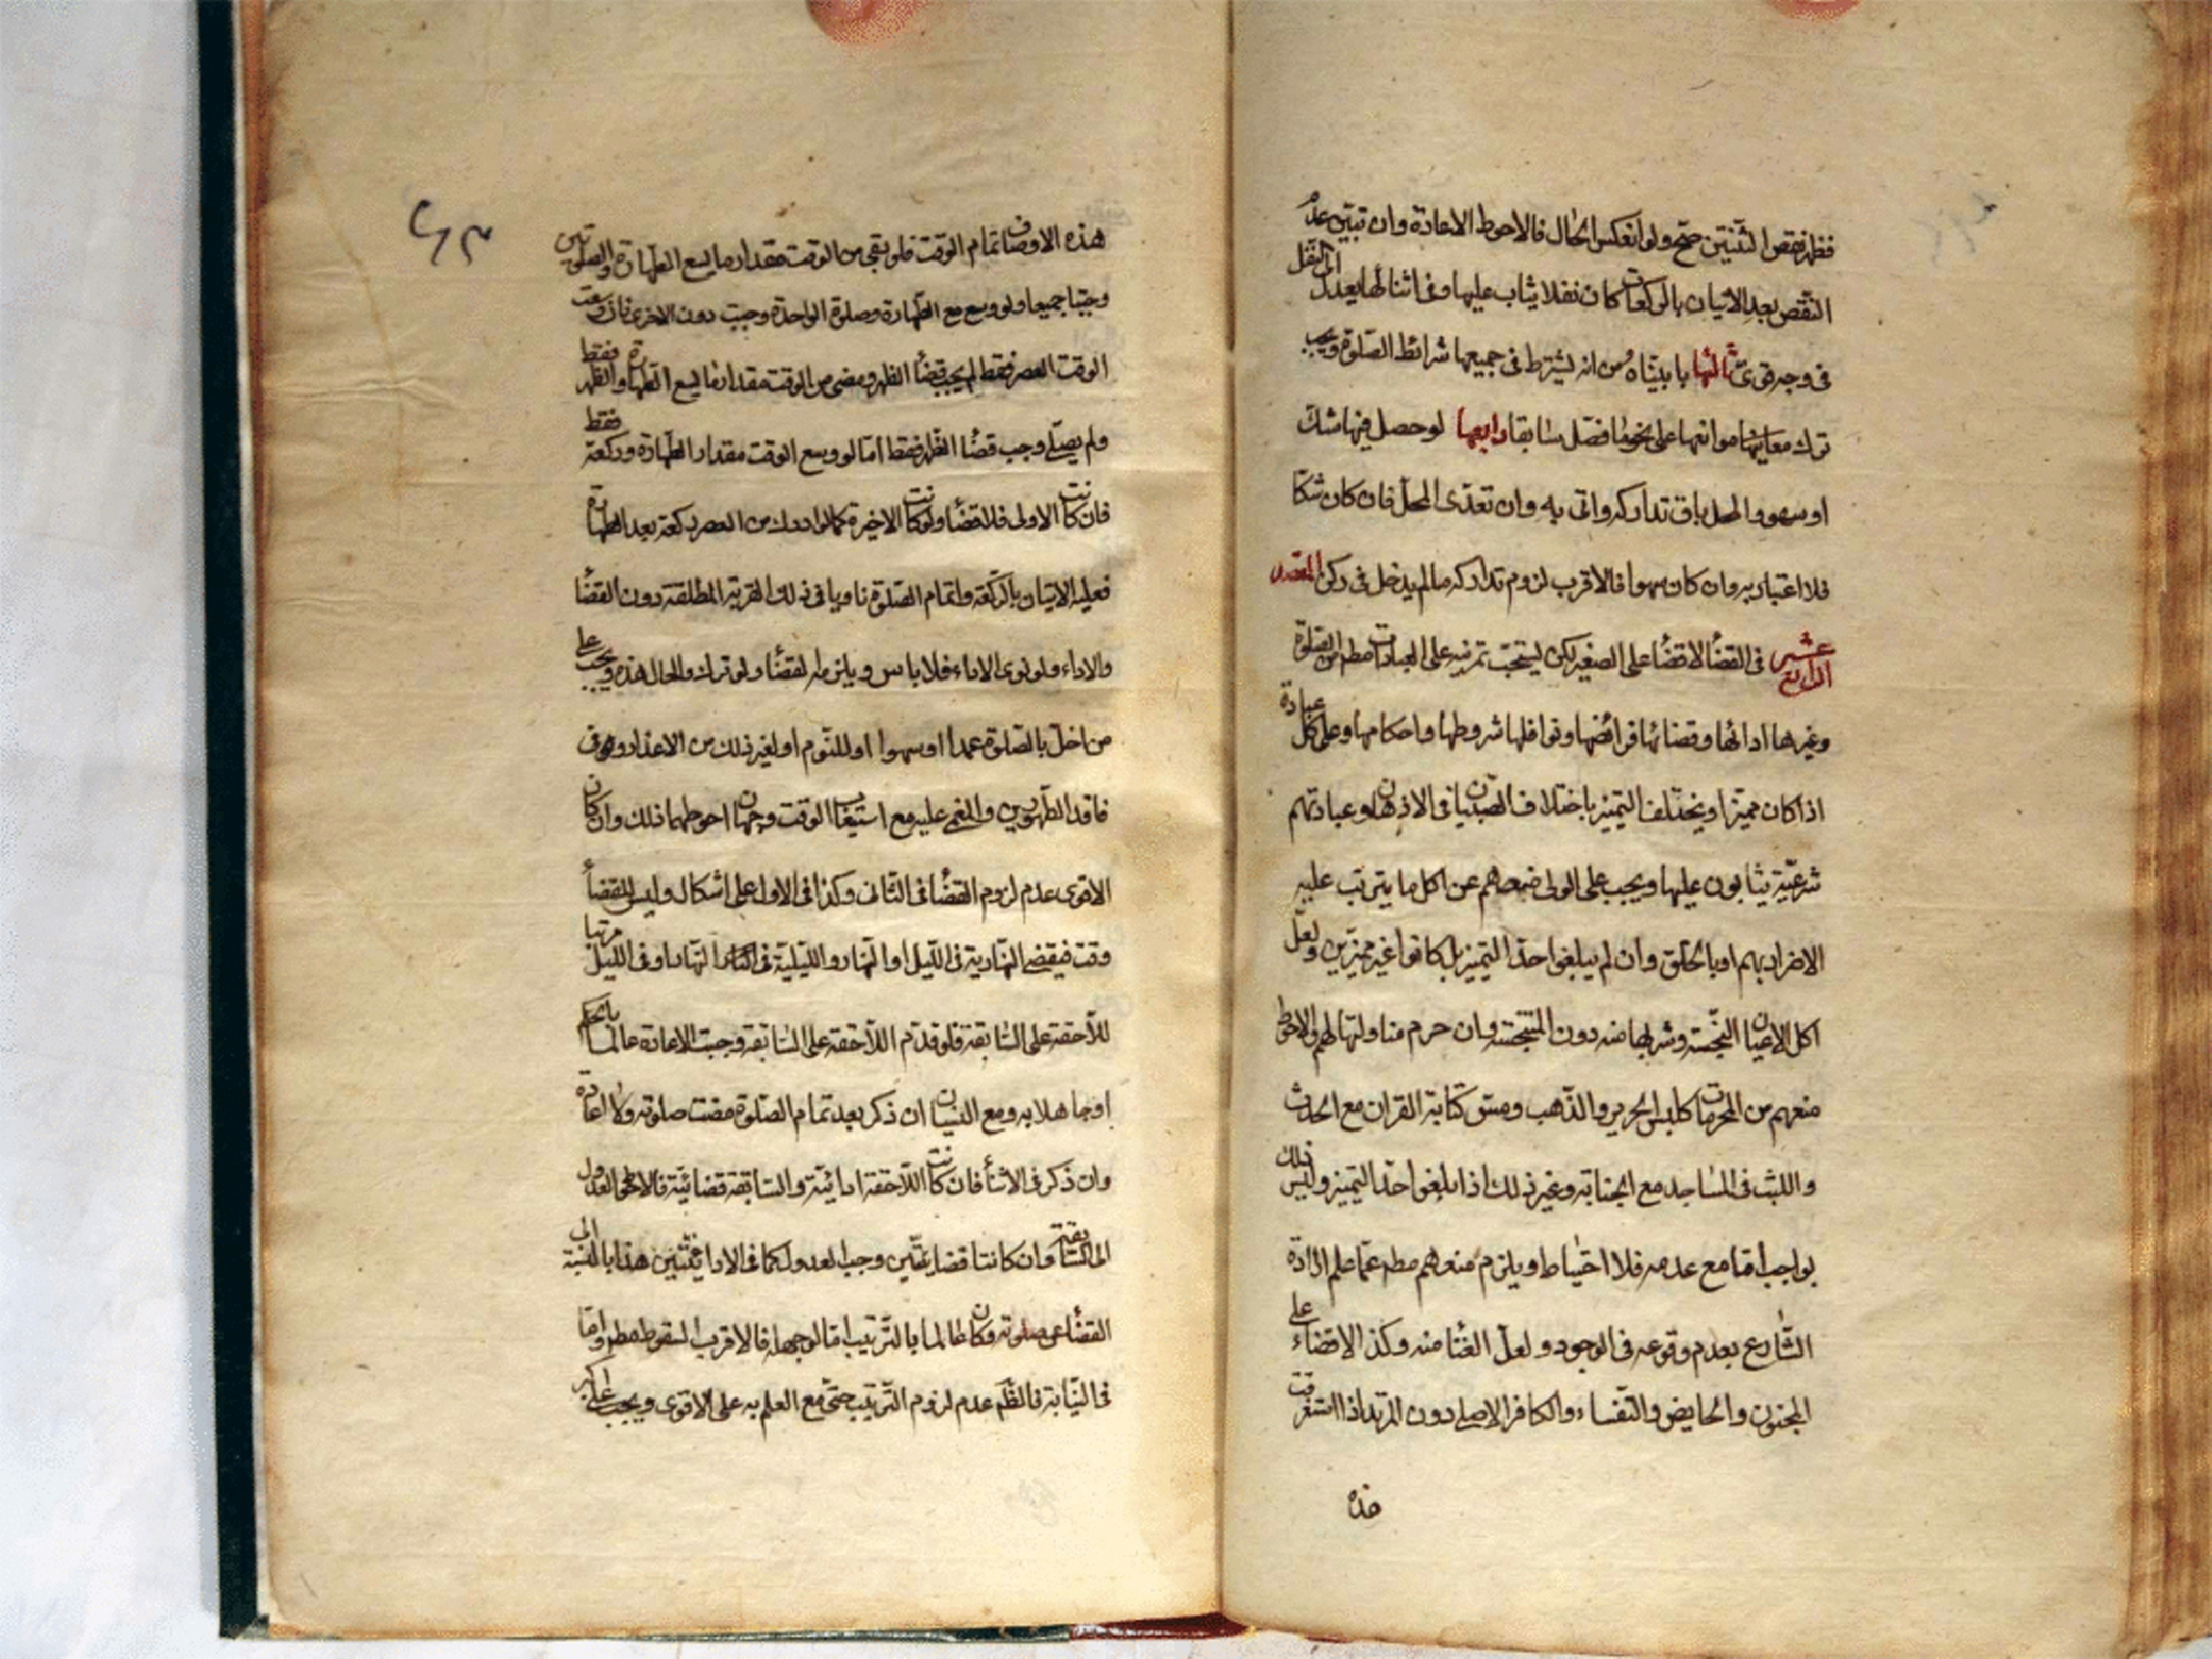 فظهر نقص الثنتين صح ولو انعكس الحال فالاحوط الاعادة وان تبين عدم
النقص بعد الاتيان بالركعات كان نفلا يثاب عليها وفى اثنائها يعدل الى النفل
فى وجه قوى ثالثها ما بيناه من انه يشترط فى جميعها شرائط الصلوة ويجب
ترك موانعها على نحو ما فصل سابقا رابعها لو حصل فيها شك
او سهو والمحل باق تداركه واتى به وان تعدى المحل فان كان شكا
فلا اعتبار به وان كان سهوا فالاقرب لزوم تداركه ما لم يدخل فى ركن المقصد
الرابع عشر فى القضاء لا قضاء على الصغير لكن يستحب تمرينه على العبادات مطم من الصلوة
وغيرها ادائها وقضائها فرائضها ونوافلها شروطها واحكامها وعلى كل عبادة
اذا كان مميزا ويختلف التميز باختلاف الصبيان فى الاذهان وعبادتهم
شرعية يثابون عليها ويجب على الولى منعهم عن اكل ما يترتب عليه
الاضرار بهم او بالخلق وان لم يبلغوا حد التميز بل كانوا غير مميزين ولعل
اكل الاعيان النجسة وشربها منه دون المتنجسة وان حرم مناولتها لهم والاحوط
منعهم من المحرمات كلبس الحرير والذهب ومس كتابة القران مع الحدث
واللبث فى المساجد مع الجنابة وغير ذلك اذا بلغوا حد التميز وليس ذلك
بواجب اما مع عدمه فلا احتياط ويلزم منعهم مطم عما علم ارادة
الشارع بعدم وقوعه فى الوجود ولعل الغنا منه وكذا لا قضاء على
المجنون والحايض والنفساء والكافر الاصلى دون المرتد اذا استغرقت
هذه
هذه الاوصاف تمام الوقت فلو بقى من الوقت مقدار ما يسع الطهارة والصلوتين
وجبتا جميعا ولو وسع مع الطهارة وصلوة الواحدة وجبت دون الاخرى فان وسعت
الوقت العصر فقط لم يجب قضاء الظهر ومضى من الوقت مقدار ما يسع الطهارة والظهر فقط
ولم يصلى وجب قضاء الظهر فقط اما لو وسع الوقت مقدار الطهارة وركعة فقط
فان كانت الاولى فلا قضاء ولو كانت الاخيرة كما لو ادرك من العصر ركعة بعد الطهارة
فعليه الاتيان بالركعة واتمام الصلوة ناويا فى ذلك القربة المطلقة دون القضاء
والاداء ولو نوى الاداء فلا باس ويلزمه القضاء ولو ترك والحال هذه ويجب على
من اخل بالصلوة عمدا او سهوا او للنوم او لغير ذلك من الاعذار وفى
فاقد الطهورين والمغمى عليه مع استيعاب الوقت وجهان احوطهما ذلك وان كان
الاقوى عدم لزوم القضاء فى الثانى وكذا فى الاول على اشكال وليس للقضاء
وقت فيقضى النهارية فى الليل او النهار والليلية فى النهار او فى الليل مرتبا
للاحقة على السابقة فلو قدم اللاحقة على السابقة وجبت الاعادة عالما بالحكم
او جاهلا به ومع النسيان ان ذكر بعد تمام الصلوة مضت صلوته ولا اعادة
وان ذكر فى الاثناء فان كانت اللاحقة ادائية والسابقة قضائية فالاحوط العدول
الى السابقة وان كانتا قضائيتين وجب العدول كما فى الادائيتين هذا بالنسبة الى
القضاء عن صلوته وكان عالما بالترتيب اما لو جهله فالاقرب السقوط مطم واما
فى النيابة فالظم عدم لزوم الترتيب حتى مع العلم به على الاقوى ويجب على اكبر